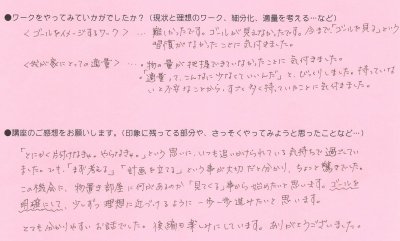 ●ワークをやってみていかがでしたか？（現状と理想のワーク、細分化、適量を考える…など）
＜ゴールをイメージするワーク＞ … 難しかったです。ゴールが見えなかったです。今まで「ゴールを見る」という
習慣がなかったことに気付きました。
＜我が家にとっての適量＞ … 物の量が把握できていなかったことに気付きました。
「適量」って、こんなに少なくていいんだ」と、びっくりしました。持っていな
いと不安なことから、すごく多く持っていることに気付きました。
●講座のご感想をお願いします。（印象に残ってる部分や、さっそくやってみようと思ったことなど…）
「とにかく片付けなきゃ。やらなきゃ。」という思いに、いつも追いかけられている気持ちで過ごしてい
ました。でも、「まず考える」「計画を立てる」という事が大切だと分かり、ちょっと驚きでした。
この機会に、物置き部屋に何があるのか「見てくる」事から始めたいと思います。ゴールを
明確にして、少しずつ理想に近づけるように一歩一歩進みたいと思います。
とても分かりやすいお話でした。後編も楽しみにしています。ありがとうございました。